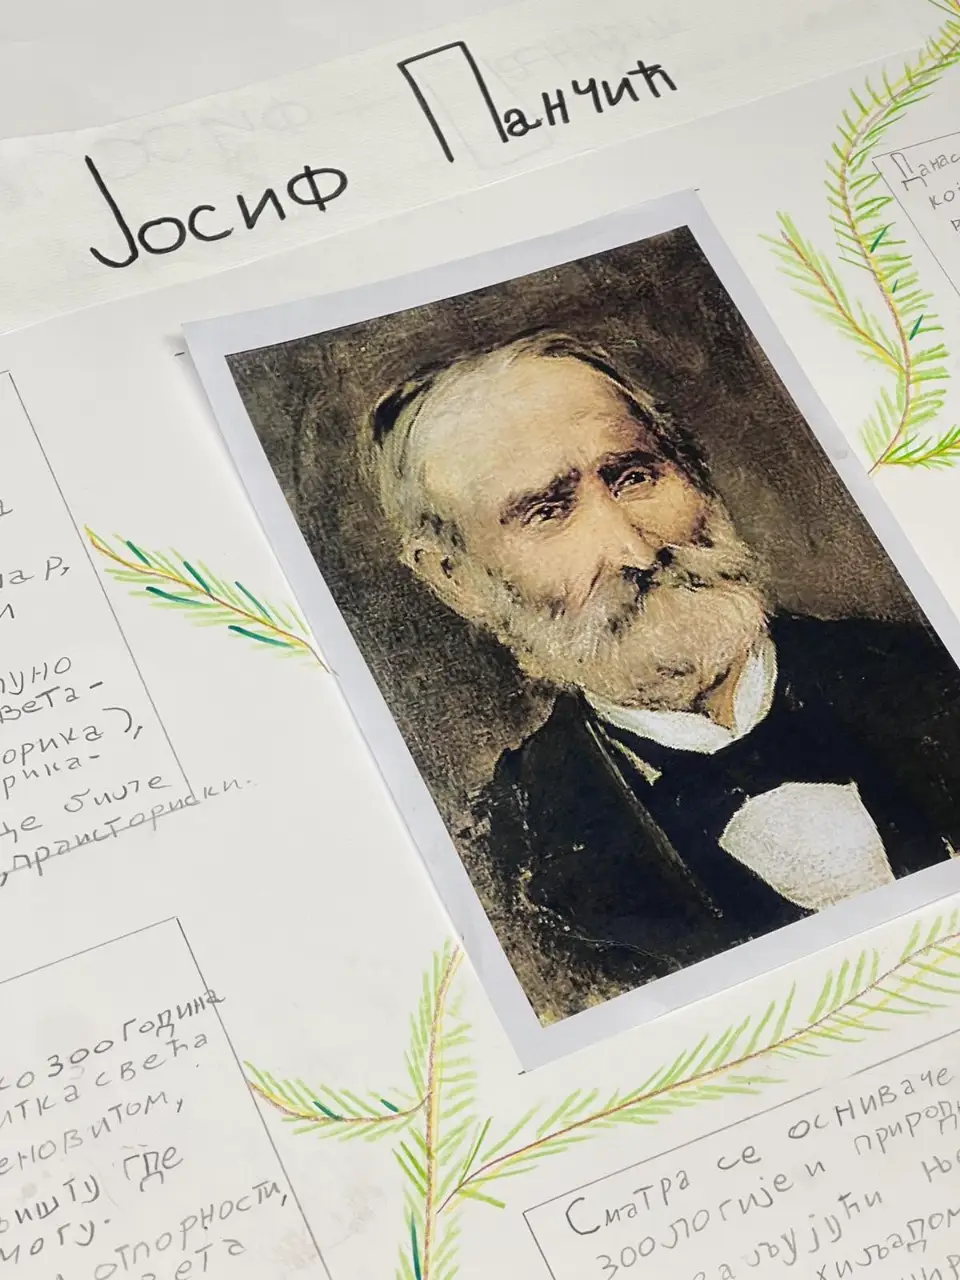 Јосиф Панчић
Данас
кој
а Р,
и
пуно
вета-
орика),
рика-
це биле
праисториски.
ко 300 година
итка свећа
еновитом,
ишту где
могу.
отпорности,
ета
Сматра се оснваче
зоологије и природ
ваљујући ње
хиљадом